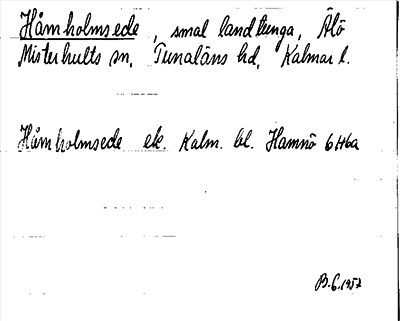 Håmholmsede, smal landtunga, Älö
Misterhults sn, Tunaläns hd, Kalmar l.
Håmholmsede ek. Kalm. bl. Hamnö 6H6a
B.G. 1957